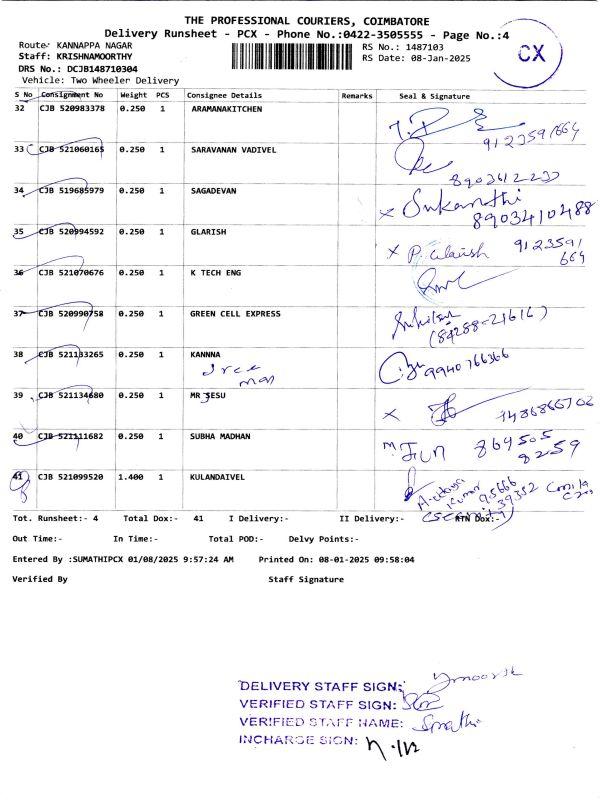 THE PROFESSIONAL COURIERS, COIMBATORE
Delivery Runsheet - PCX - Phone No.:0422-3505555 - Page No.:4
Route: KANNAPPA NAGAR
RS No.: 1487103
Staff: KRISHNAMOORTHY
RS Date: 08-Jan-2025
CX
DRS No.: DCJB148710304
Vehicle: Two Wheeler Delivery
S No Consignment No Weight PCS Consignee Details Remarks Seal & Signature
32 CJB 520983378 0.250 1 ARAMANAKITCHEN
33 CJB 521060165 0.250 1 SARAVANAN VADIVEL
34 CJB 519685979 0.250 1 SAGADEVAN
Sukanthi
8903410488
35 CJB 520994592 0.250 1 GLARISH
P. Glarish 9123591
664
36 CJB 521070676 0.250 1 K TECH ENG
37 CJB 520990758 0.250 1 GREEN CELL EXPRESS
(84288-21616)
38 CJB 521133265 0.250 1 KANNNA
9940766366
39 CJB 521134680 0.250 1 MR JESU
40 CJB 521111682 0.250 1 SUBHA MADHAN
864505
8259
41 CJB 521099520 1.400 1 KULANDAIVEL
Tot. Runsheet:- 4 Total Dox:- 41 I Delivery:- II Delivery:- RTN Dox:-
Out Time:- In Time:- Total POD:- Delvy Points:-
Entered By :SUMATHIPCX 01/08/2025 9:57:24 AM Printed On: 08-01-2025 09:58:04
Verified By Staff Signature
DELIVERY STAFF SIGN:
VERIFIED STAFF SIGN:
VERIFIED STAFF NAME:
INCHARGE SIGN: